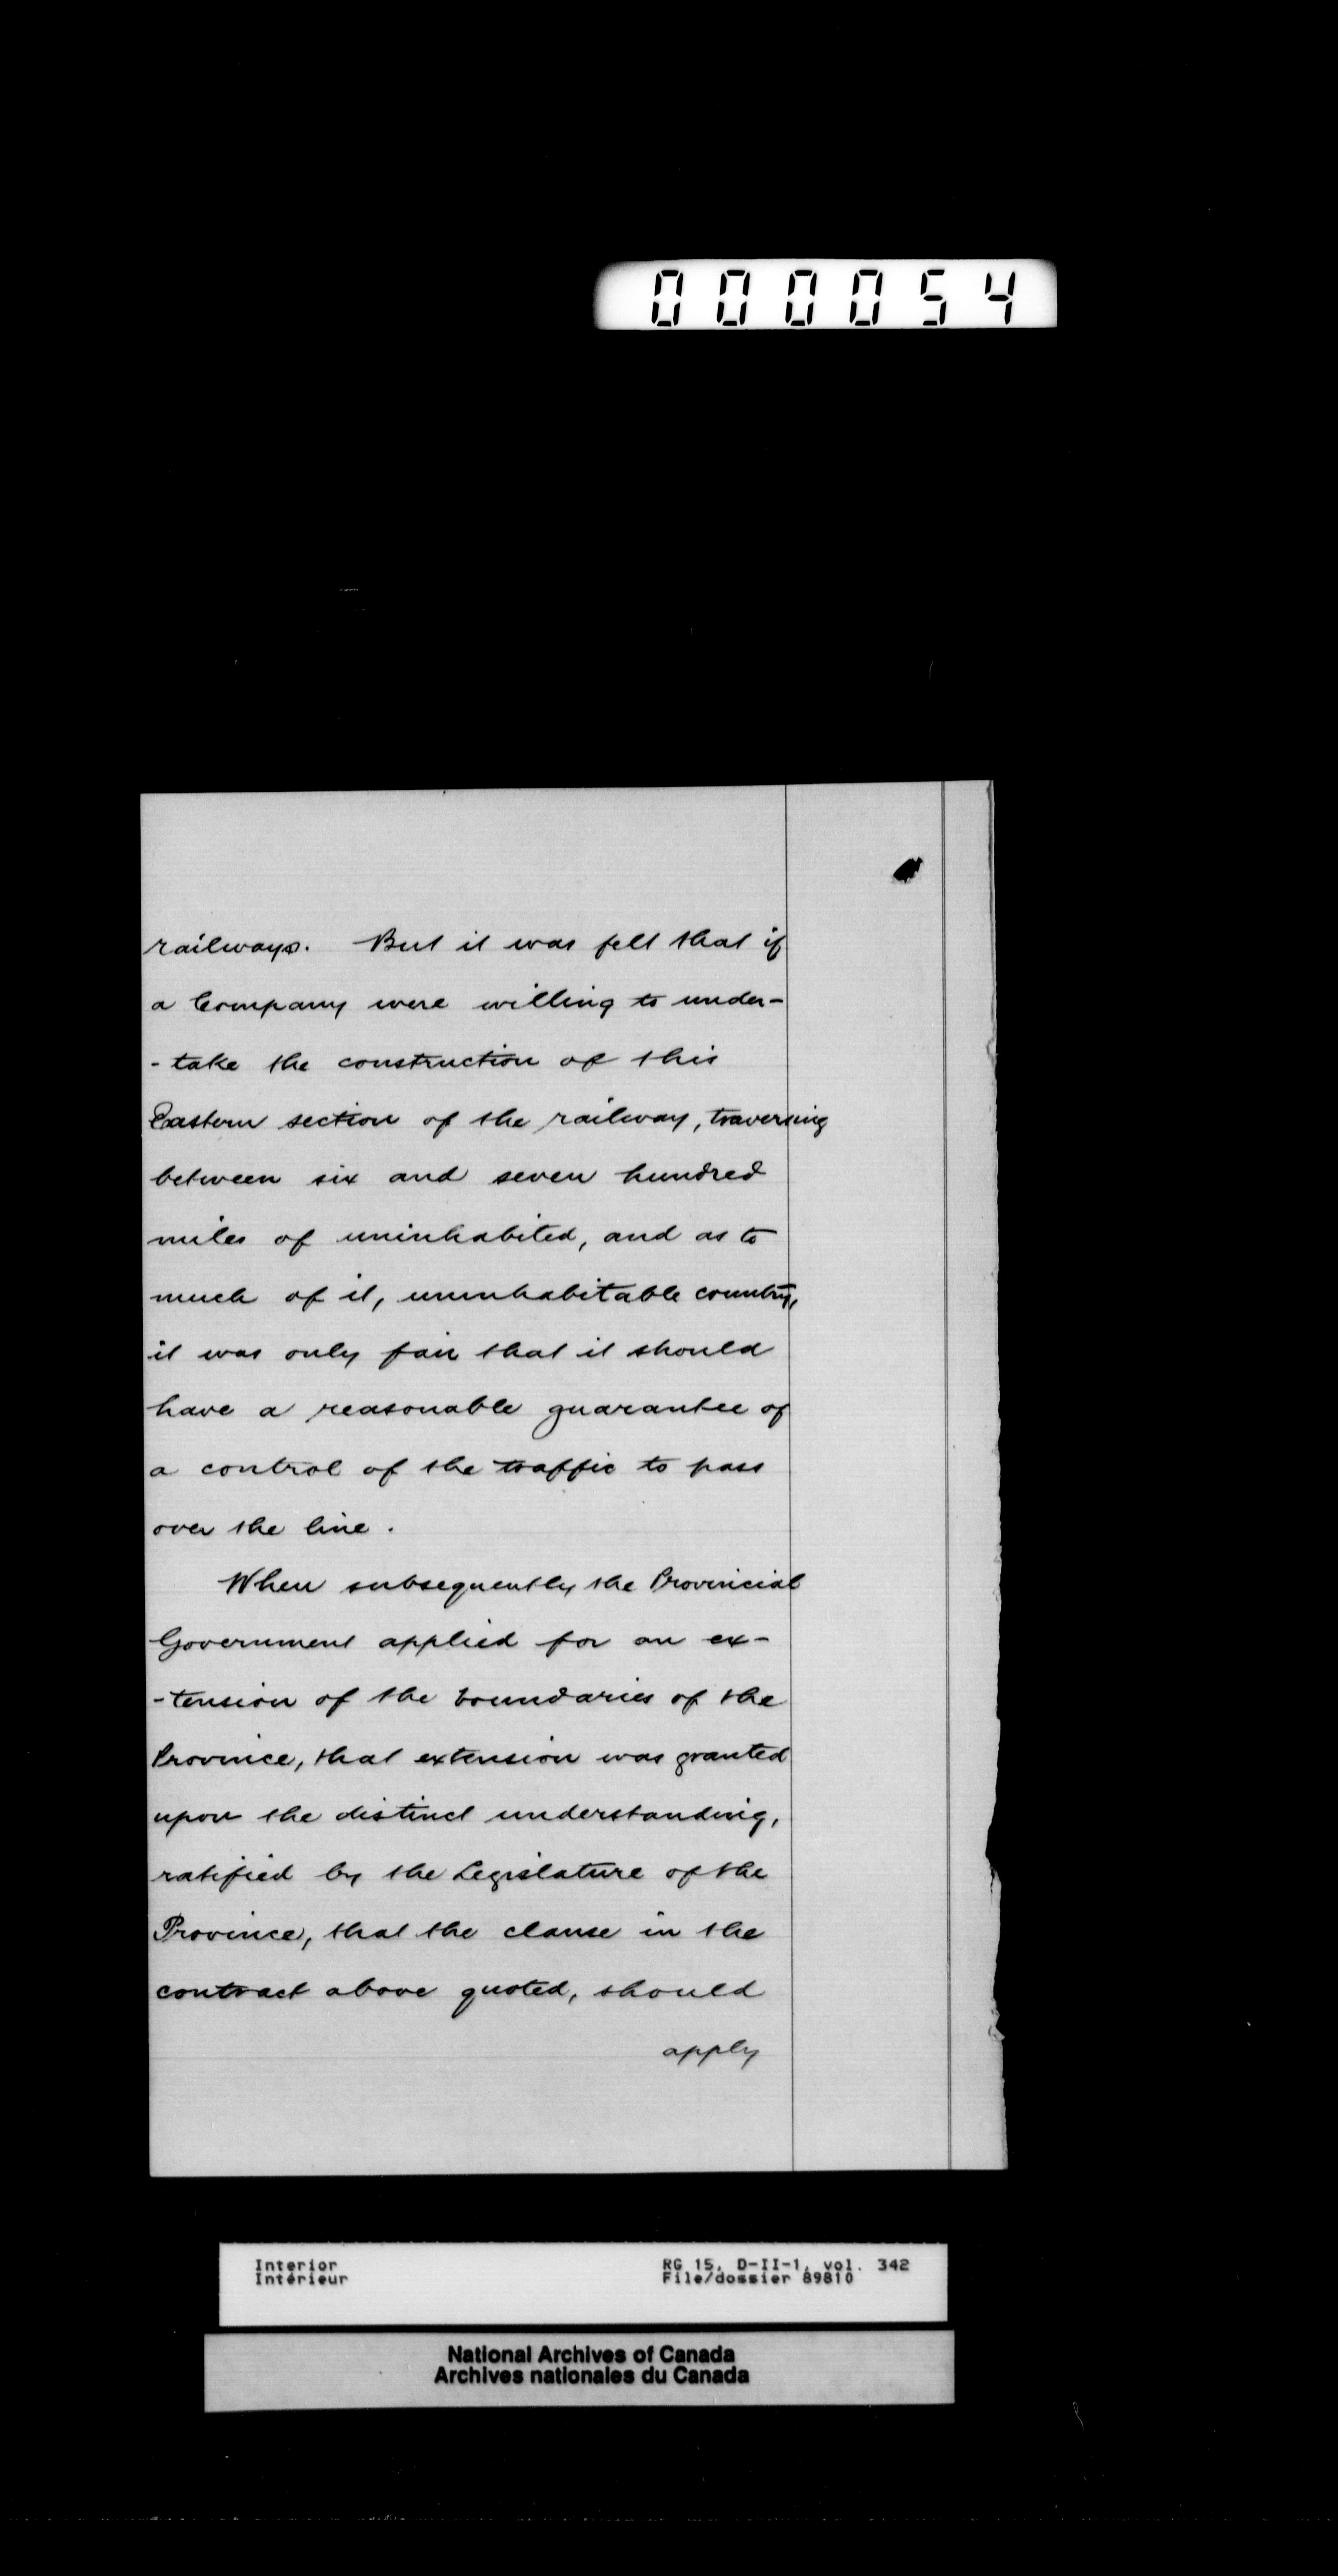 000054
railways. But it was felt that if
a Company were willing to under-
- take the construction of this
Eastern section of the railway, traversing
between six and seven hundred
miles of uninhabited, and as to
much of it, uninhabitable country,
it was only fair that it should
have a reasonable guarantee of
a control of the traffic to pass
over the line.
When subsequently the Provincial
Government applied for an ex-
- tension of the boundaries of the
Province, that extension was granted
upon the distinct understanding,
ratified by the Legislature of the
Province, that the clause in the
contract above quoted, should
apply
Interior RG 15, D-II-1, vol. 342
Intérieur File/dossier 89810
National Archives of Canada
Archives nationales du Canada